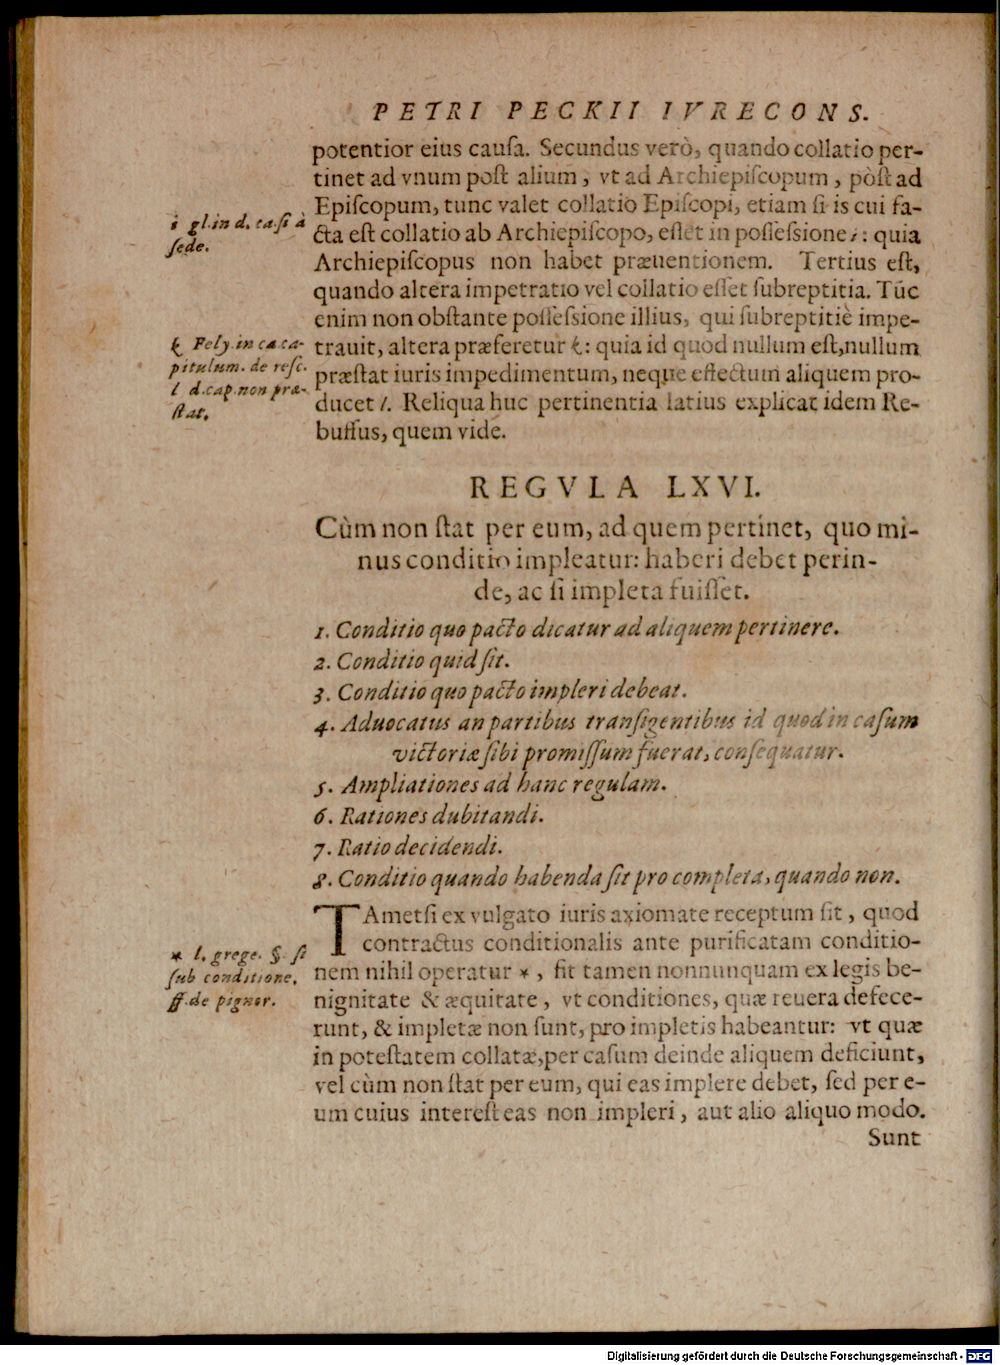 PETRI PECKII IVRECONS.
potentior eius cauſa. Secundus verò, quando collatio per-
tinet ad vnum poſt alium, vt ad Archiepiſcopum, pòſt ad
Epiſcopum, tunc valet collatio Epiſcopi, etiam ſi is cui fa-
cta eſt collatio ab Archiepiſcopo, eſſet in poſſeſsione i: quia
Archiepiſcopus non habet præuentionem. Tertius eſt,
quando altera impetratio vel collatio eſſet ſubreptitia. Tūc
enim non obſtante poſſeſsione illius, qui ſubreptitiè impe-
trauit, altera præferetur k: quia id quod nullum eſt, nullum
præſtat iuris impedimentum, neque effectum aliquem pro-
ducet l. Reliqua huc pertinentia latius explicat idem Re-
buffus, quem vide.
i gl. in d. ca. ſi à
ſede.
k Fely. in ca ca-
pitulum. de reſc.
l d. cap. non præ-
ſtat.
REGVLA LXVI.
Cùm non ſtat per eum, ad quem pertinet, quo mi-
nus conditio impleatur: haberi debet perin-
de, ac ſi impleta fuiſſet.
1. Conditio quo pacto dicatur ad aliquem pertinere.
2. Conditio quid ſit.
3. Conditio quo pacto impleri debeat.
4. Aduocatus an partibus tranſigentibus id quod in caſum
victoriæ ſibi promiſſum fuerat, conſequatur.
5. Ampliationes ad hanc regulam.
6. Rationes dubitandi.
7. Ratio decidendi.
8. Conditio quando habenda ſit pro completa, quando non.
TAmetſi ex vulgato iuris axiomate receptum ſit, quod
contractus conditionalis ante purificatam conditio-
nem nihil operatur *, fit tamen nonnunquam ex legis be-
nignitate & æquitate, vt conditiones, quæ reuera defece-
runt, & impletæ non ſunt, pro impletis habeantur: vt quæ
in poteſtatem collatæ, per caſum deinde aliquem deficiunt,
vel cùm non ſtat per eum, qui eas implere debet, ſed per e-
um cuius intereſt eas non impleri, aut alio aliquo modo.
* l. grege. §. ſi
ſub conditione.
ff. de pignor.
Sunt
Digitalisierung gefördert durch die Deutsche Forschungsgemeinschaft - DFG